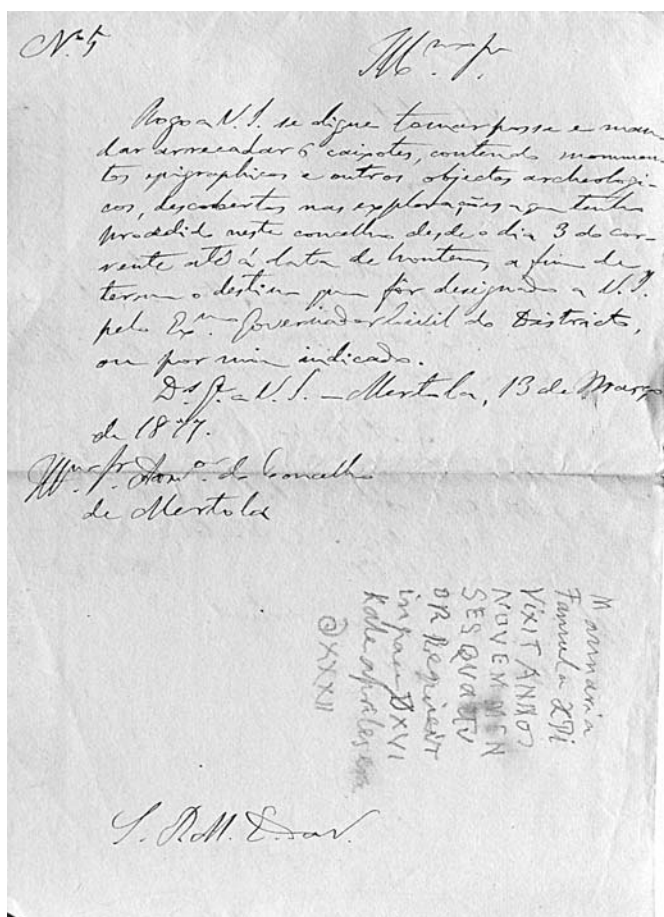 Nº 5
Illmo Sr.
Rogo a V. S. se digne tomar posse e man
dar arrecadar 6 caixotes, contendo monumen
tos epigraphicos e outros objectos archeologi-
cos, descobertos nas explorações a que tenho
procedido neste concelho desde o dia 3 do cor-
rente até á data de hontem, a fim de
terem o destino que fôr designado a V. S.
pelo Exmo Governador Civil do Districto,
ou por mim indicado.
Ds. Ge. a V. S. – Mertola, 13 de Março
de 1877.
Illmo Sr. Admor do Concelho
de Mertola
Famula XPi
VIXIT ANNOS
NOVEM MEN
SES QVATTV
OR Requievit
in pace D XVI
Kal apriles era
XXXII
S. P. M. E. da V.